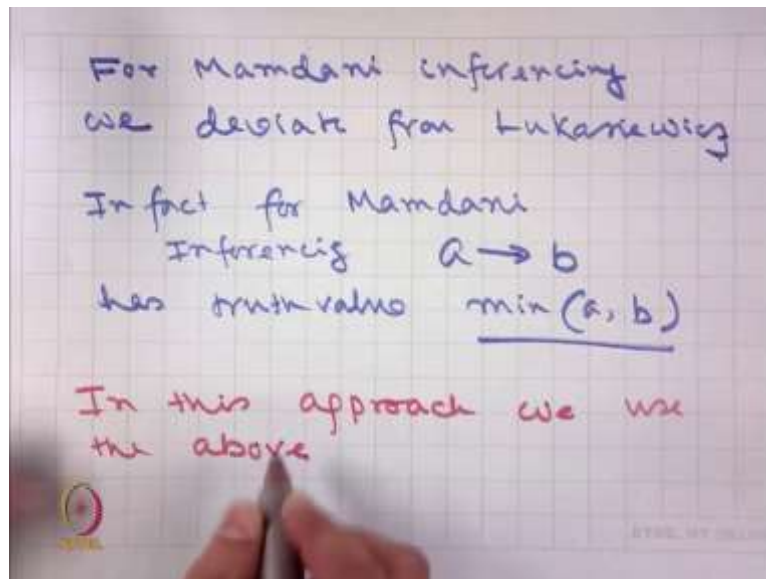 For Mamdani inferencing
we deviate from Lukasiewicz
In fact for Mamdani
Inferencig a → b
has truth value min (a, b)
In this approach we use
the above